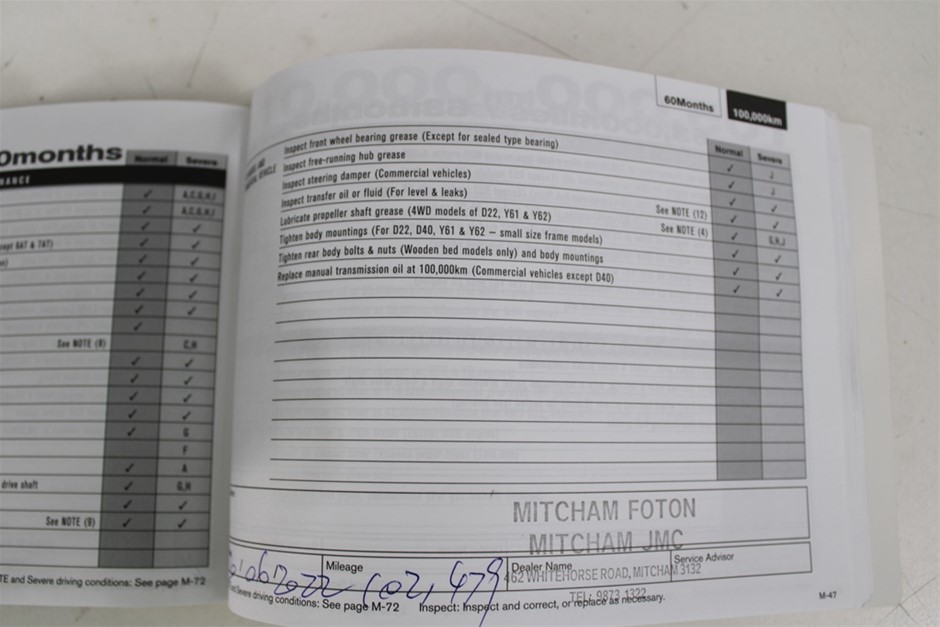 0months
Normal Severe
NANCE
A,C,G,H,I
A,C,G,H,I
cept 6AT & 7AT)
See NOTE (8) C,H
G
F
A
drive shaft G,H
See NOTE (9)
TE and Severe driving conditions: See page M-72
60Months 100,000km
Normal Severe
Inspect front wheel bearing grease (Except for sealed type bearing)
Inspect free-running hub grease
Inspect steering damper (Commercial vehicles)
Inspect transfer oil or fluid (For level & leaks)
Lubricate propeller shaft grease (4WD models of D22, Y61 & Y62) See NOTE (12)
Tighten body mountings (For D22, D40, Y61 & Y62 – small size frame models) See NOTE (4) G,H,J
Tighten rear body bolts & nuts (Wooden bed models only) and body mountings
Replace manual transmission oil at 100,000km (Commercial vehicles except D40)
MITCHAM FOTON
MITCHAM JMC
Mileage Dealer Name Service Advisor
2022 102,479
462 WHITEHORSE ROAD, MITCHAM 3132
TEL: 9873 1322
Severe driving conditions: See page M-72 Inspect: Inspect and correct, or replace as necessary.
M-47